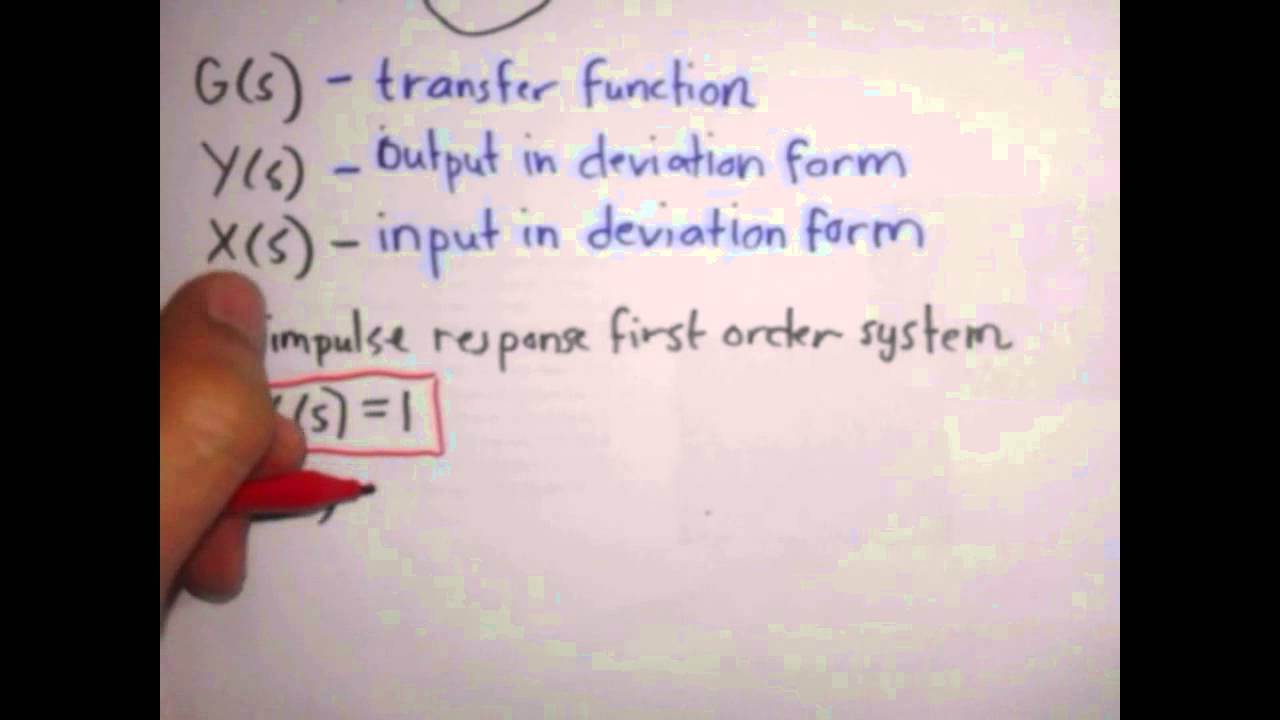 G(s) - transfer function
Y(s) - output in deviation form
X(s) - input in deviation form
impulse response first order system
(s) = 1